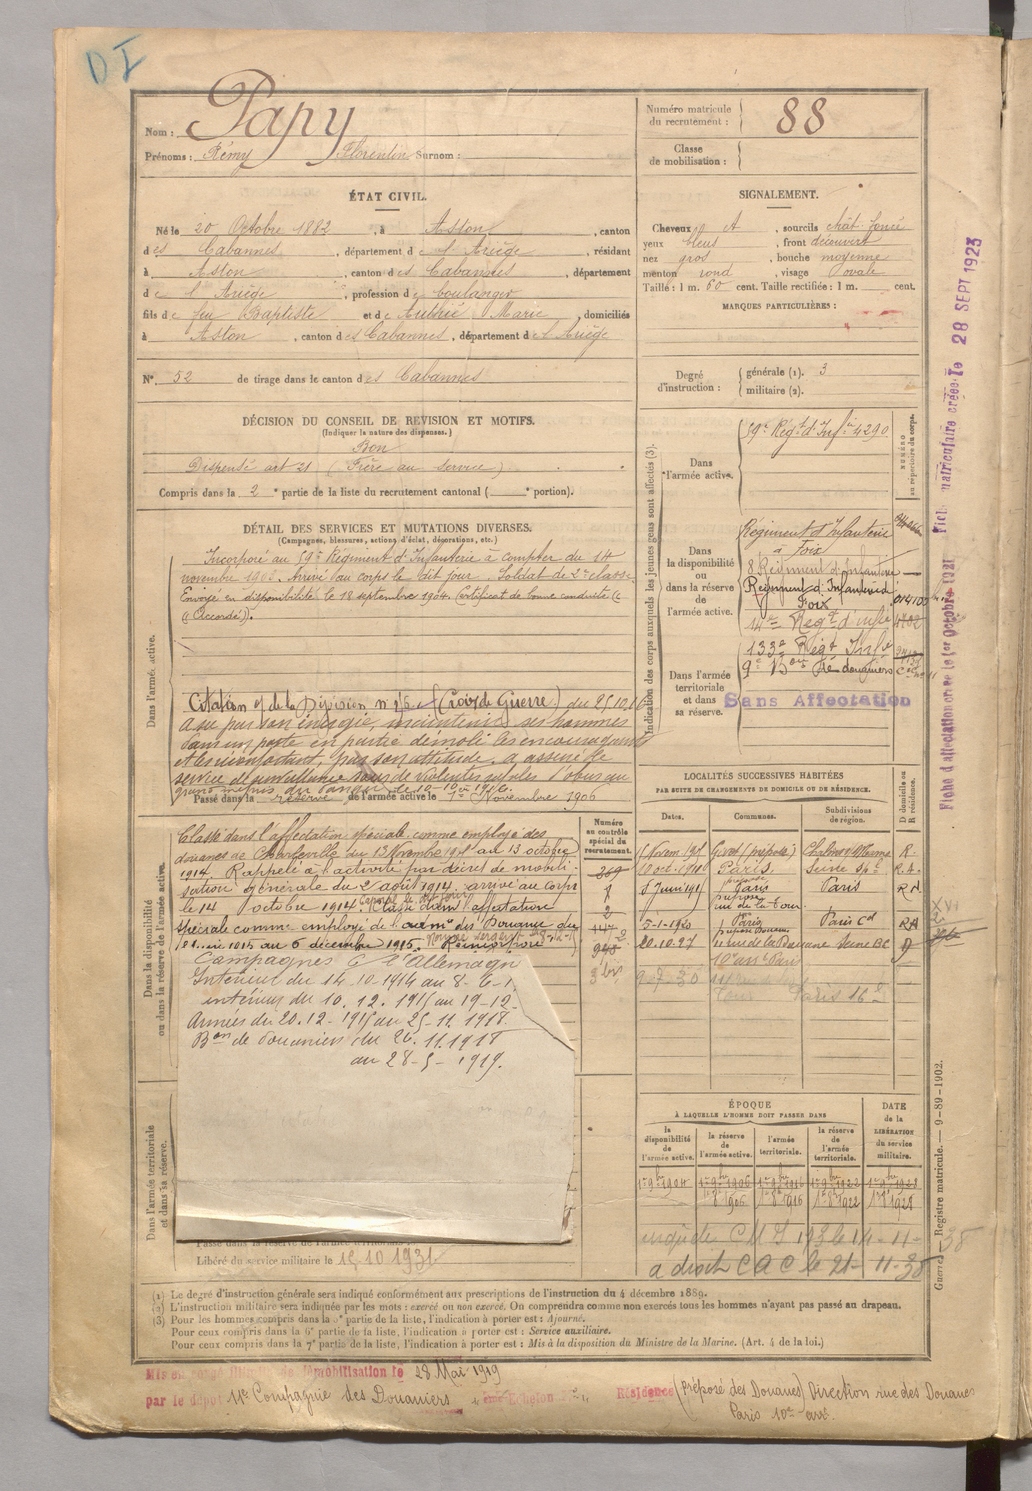 DI
Nom : Papy
Prénoms : Rémy Florentin Surnom :
Numéro matricule du recrutement : 88
Classe de mobilisation :
ÉTAT CIVIL.
Né le 20 Octobre 1882, à Aston, canton
des Cabannes, département de l'Ariège, résidant
à Aston, canton des Cabannes, département
de l'Ariège, profession de boulanger
fils de feu Baptiste et de Authié Marie, domiciliés
à Aston, canton des Cabannes, département de l'Ariège
N° 52 de tirage dans le canton des Cabannes
SIGNALEMENT.
Cheveux et, sourcils chât. foncé
yeux bleus, front découvert
nez gros, bouche moyenne
menton rond, visage ovale
Taille : 1 m. 60 cent. Taille rectifiée : 1 m. cent.
MARQUES PARTICULIÈRES :
Degré d'instruction : générale (1). 3
militaire (2).
DÉCISION DU CONSEIL DE REVISION ET MOTIFS.
(Indiquer la nature des dispenses.)
Bon
Dispensé art 21 (Frère au service)
Compris dans la 2e partie de la liste du recrutement cantonal ( portion).
DÉTAIL DES SERVICES ET MUTATIONS DIVERSES.
(Campagnes, blessures, actions d'éclat, décorations, etc.)
Dans l'armée active.
Incorporé au 59e Régiment d'Infanterie à compter du 14
novembre 1903. Arrivé au corps le dit jour. Soldat de 2e classe.
Envoyé en disponibilité le 18 septembre 1904. Certificat de bonne conduite
"Accordé".
Citation de la Division (Croix de Guerre) du 25.10.16
A su par son énergie, maintenir ses hommes
dans un poste en partie démoli les encourageant
et les réconfortant, par son attitude, a assuré le
service de surveillance sous de violentes rafales d'obus au
grand mépris du danger le 10-10-1916.
Passé dans la réserve de l'armée active le 1er Novembre 1906
Dans la disponibilité ou dans la réserve de l'armée active.
Classé dans l'affectation spéciale comme employé des
douanes de Charleville du 13 Novembre 1908 au 13 octobre
1914. Rappelé à l'activité par décret de mobili-
sation générale du 2 août 1914. arrivé au corps
le 14 octobre 1914. Caporal le dit jour. Classé dans l'affectation
spéciale comme employé de l'adm° des Douanes du
1915 au 6 décembre 1915. Nommé sergent
Campagnes C. l'Allemagne
Intérieur du 14-10-1914 au 8-6-1
intérieur du 10.12.1915 au 19-12-
Armées du 20.12-1915 au 25-11.1918.
Bon de Douaniers du 26.11.1918
au 28-5-1919.
Numéro au contrôle spécial du recrutement.
269
1
2
117
940
3 bis
Dans l'armée territoriale et dans sa réserve.
Libéré du service militaire le 15.10.1931
Indication des corps auxquels les jeunes gens sont affectés (3).
NUMÉRO au répertoire du corps.
Dans l'armée active.
59e Régt d'Infie 4290
Dans la disponibilité ou dans la réserve de l'armée active.
Régiment d'Infanterie
à Foix
8 Régiment d'Infanterie
Régiment d'Infanterie d
Foix 014100
14e Régt d'Infie 4702
Dans l'armée territoriale et dans sa réserve.
133e Régt Infie
9e Bon de douaniers
Sans Affectation
LOCALITÉS SUCCESSIVES HABITÉES
PAR SUITE DE CHANGEMENTS DE DOMICILE OU DE RÉSIDENCE.
Dates. Communes. Subdivisions de région. D domicile ou R résidence.
Givet (préposé) Châlons s/ Marne R.
Paris Seine R.
8 Juin 1915 Paris Paris R
5-1-1920 Paris Paris Cal R
20.10.27 Seine BC D
10e arrt Paris
Paris 16e
ÉPOQUE
À LAQUELLE L'HOMME DOIT PASSER DANS
la disponibilité de l'armée active. la réserve de l'armée active. l'armée territoriale. la réserve de l'armée territoriale.
DATE de la LIBÉRATION du service militaire.
1er 9bre 1904 1er 9bre 1906 1er 9bre 1916 1er 9bre 1922 1er 9bre 1928
1er 8bre 1906 1er 8bre 1916 1er 8bre 1922 1er 8bre 1928
a droit CAC le 21-11-38
Fiche d'affectation créée le 1er Octobre 1921
Fiche matriculaire créée le 28 SEPT 1923
XVI
Guerre. — Registre matricule. — 9-89-1902.
(1) Le degré d'instruction générale sera indiqué conformément aux prescriptions de l'instruction du 4 décembre 1889.
(2) L'instruction militaire sera indiquée par les mots : exercé ou non exercé. On comprendra comme non exercés tous les hommes n'ayant pas passé au drapeau.
(3) Pour les hommes compris dans la 5e partie de la liste, l'indication à porter est : Ajourné.
Pour ceux compris dans la 6e partie de la liste, l'indication à porter est : Service auxiliaire.
Pour ceux compris dans la 7e partie de la liste, l'indication à porter est : Mis à la disposition du Ministre de la Marine. (Art. 4 de la loi.)
Mis en congé illimité de démobilisation le 28 Mai 1919
par le dépôt 11e Compagnie des Douaniers Échelon
Résidence (préposé des Douanes) Direction rue des Douanes
Paris 10e arrt.